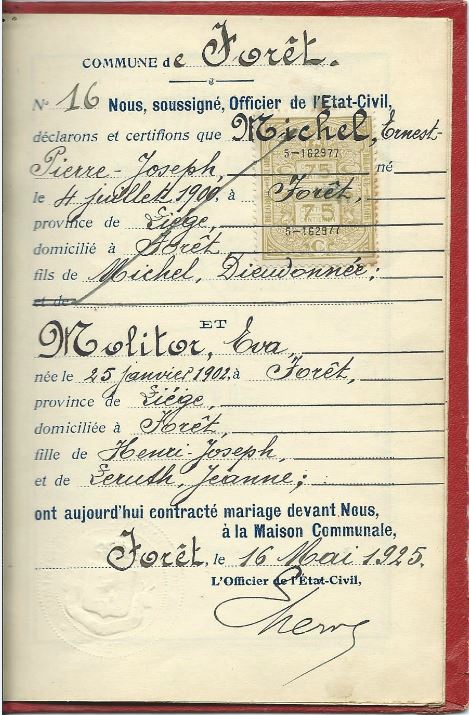 COMMUNE de Forêt.
N° 16 Nous, soussigné, Officier de l'Etat-Civil,
déclarons et certifions que Michel, Ernest-
Pierre-Joseph, né
le 4 juillet 1900. à Forêt,
province de Liége,
domicilié à Forêt
fils de Michel, Dieudonnée;
et de
5-162977
75
75
CENTIEMES
5-162977
C
ET
Molitor, Eva,
née le 25 janvier 1902. à Forêt,
province de Liége,
domiciliée à Forêt,
fille de Henri-Joseph,
et de Leruth, Jeanne;
ont aujourd'hui contracté mariage devant Nous,
à la Maison Communale,
Forêt, le 16 Mai 1925.
L'Officier de l'Etat-Civil,